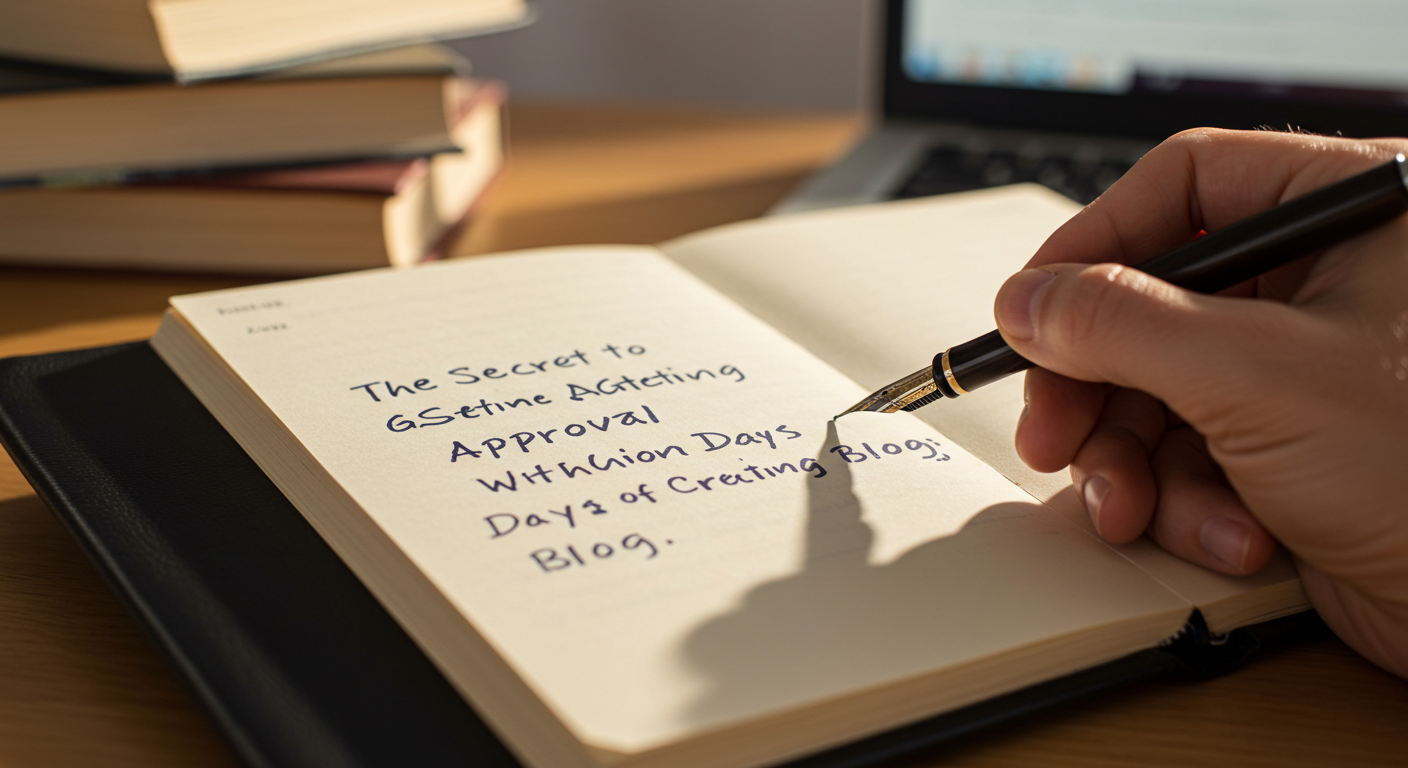 The Secret to
GSetine AGteting
Approval
WithGion Days
Days of Creating Blog;
Blog.